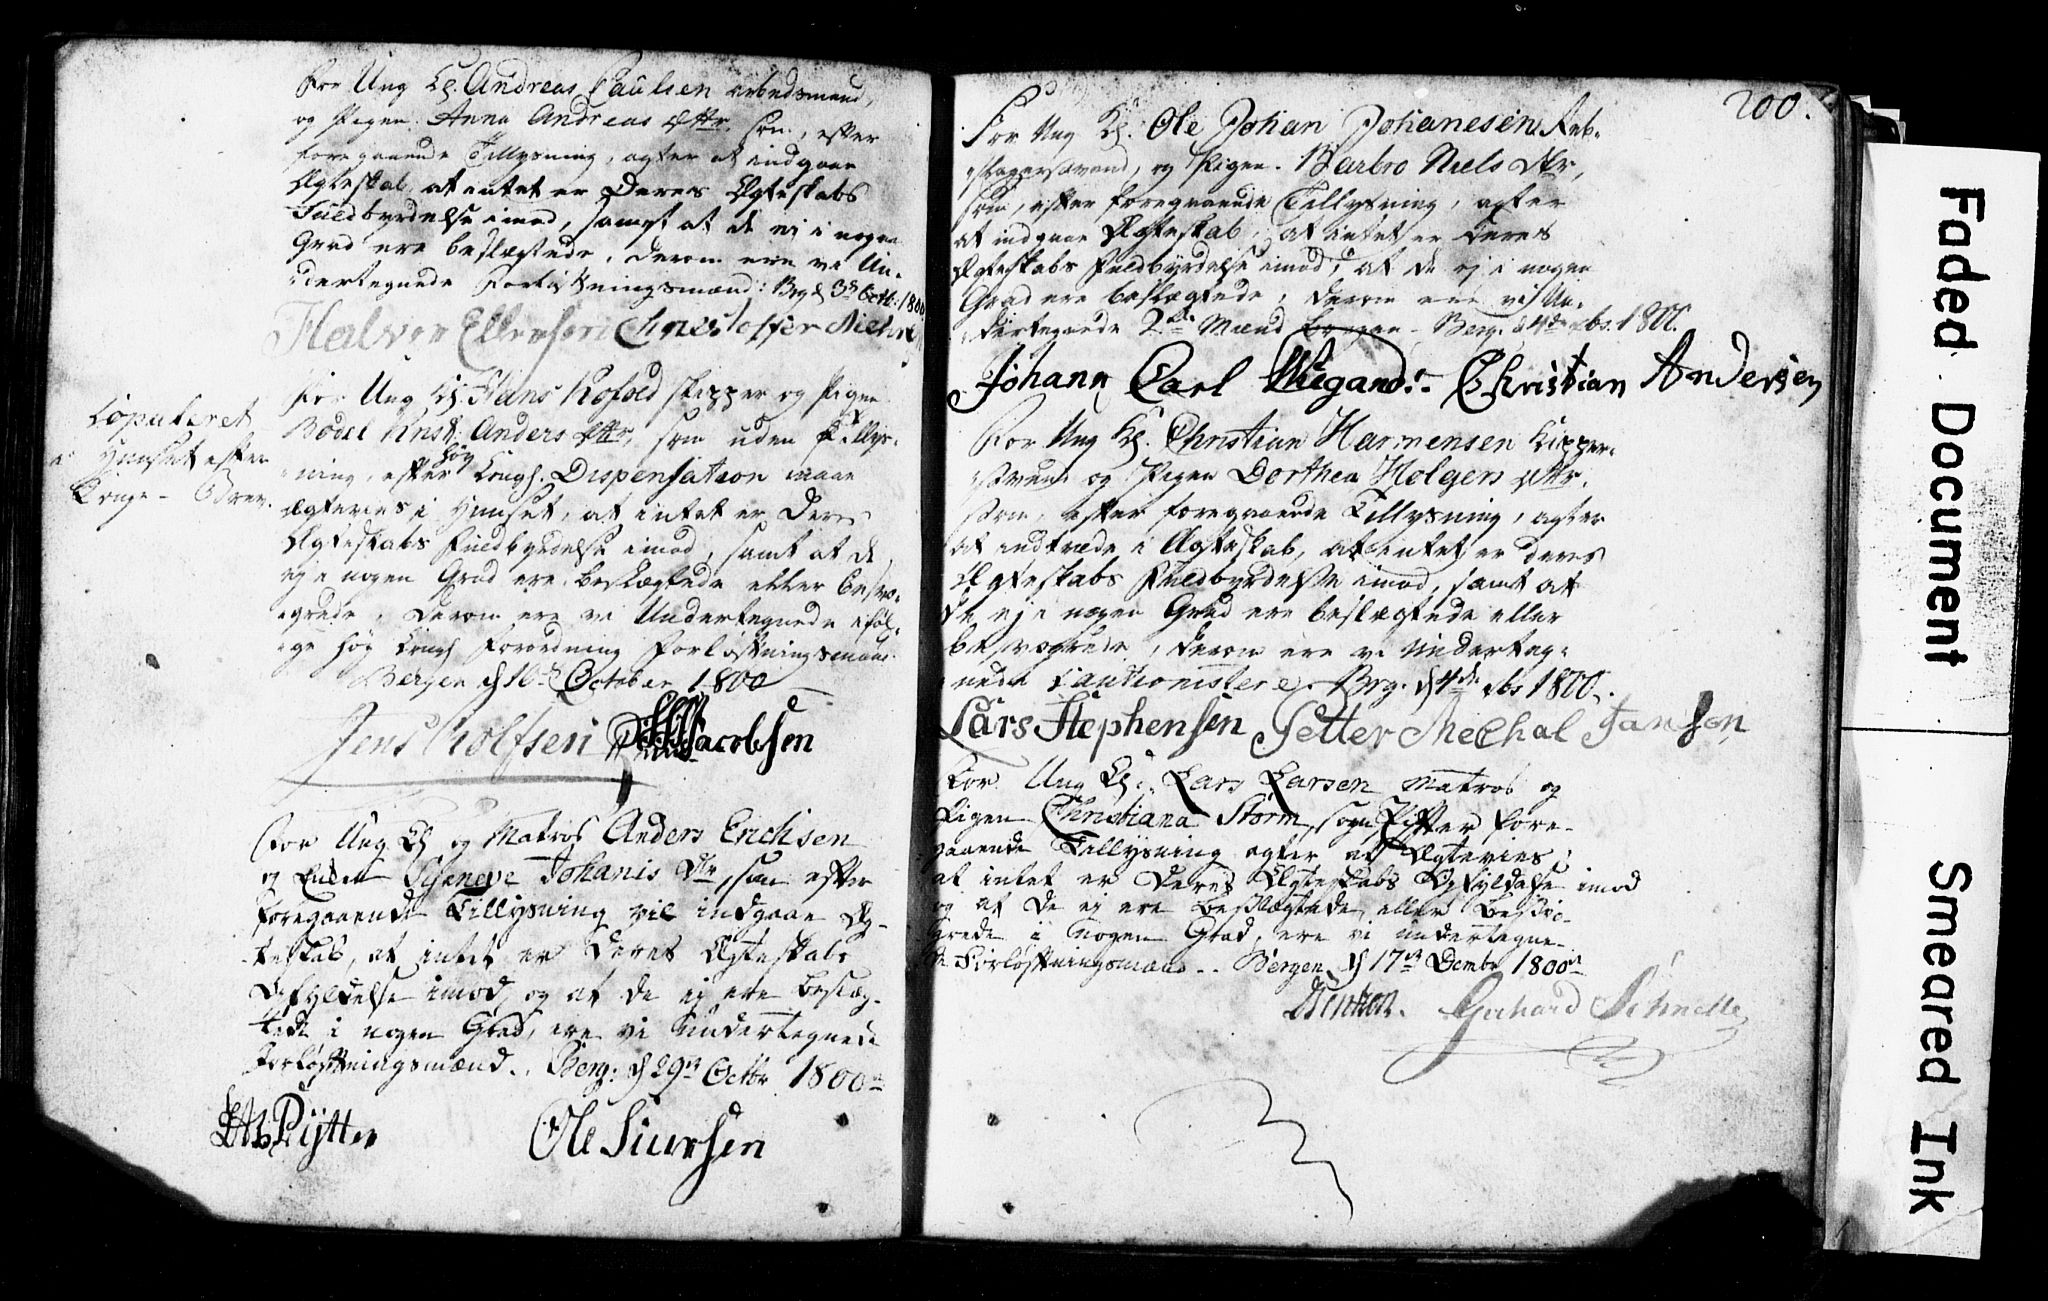 For Ung K. Andreas Paulsen arbeidsmand,
og Pigen Anna Andreas dttr, som, efter
foregaaende Tillysning, agter at indgaae
Ægteskab, at intet er Deres Ægteskabs
Fuldbyrdelse imod, samt at de ej i nogen
Grad ere beslægtede, derom ere vi Un-
dertegnede Forløftningsmænd: Brg d 3 Octb: 1800
Halvor Ellensen Christoffer Niels
For Ung K. Hans Kofoed skipper og Pigen
Bodel Anders dttr, som uden Tillys-
ning, efter høy Kongl. Dispensation maae
Ægtevies i Huuset, at intet er Deres
Ægteskabs Fuldbyrdelse imod, samt at de
ej i nogen Grad ere beslægtede eller besvo-
grede, derom ere vi Undertegnede iføl-
ge høy Kongl Forordning Forløftningsmænd
Bergen d 16 October 1800
Copuleret
i Huuset efter
Konge-Brev.
Jens Rolfsen Jacobsen
For Ung K og Matros Anders Erichsen
og Enken Johanis dtr, som efter
foregaaende Tillysning vil indgaae Æg-
teskab, at intet er Deres Ægteskabs
Opfyldelse imod, og at de ej ere beslæg-
tede i nogen Grad, ere vi undertegnede
Forløftningsmænd. Berg: d 29 Octbr 1800
Pÿtter Ole Siursen
200.
For Ung K. Ole Johan Johanesen Reb-
slagersvend, og Pigen Barbro Niels dtr,
som, efter foregaaende Tillysning, agter
at indgaae Ægteskab, at intet er deres
Ægteskabs Fuldbyrdelse imod, at de ej i nogen
Grad ere beslægtede, derom ere vi Un-
dertegnede 2de Mænd Borgen - Berg. d 4de xbr. 1800.
Johann Carl Wiegand. Christian Andersen
For Ung K. Christian Harmensen Kipper-
svend og Pigen Dorthea Holgers dttr.
som, efter foregaaende Tillysning, agter
at indtræde i Ægteskab, at intet er deres
Ægteskabs Fuldbyrdelse imod, samt at
de ej i nogen Grad ere beslægtede eller
besvogrede, derom ere vi Underteg-
nede Cautionistere. Brg. d 4de xbr 1800.
Lars Stephensen Petter Mechal Jansen
For Ung K: Lars Larsen Matros og
Pigen Christiana Storm, som efter fore-
gaaende Tillysning agter at Ægtevies,
at intet er Deres Ægteskabs Opfyldelse imod
og at de ej ere beslægtede eller besvo-
grede i nogen Grad, ere vi undertegne-
de Forløftningsmænd. Bergen d 17 Decembr 1800
Gerhard Schnelle
Faded Document
Smeared Ink